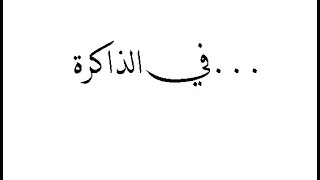 ...في الذاكرة